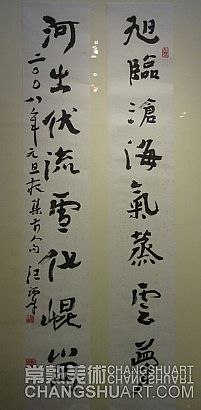 旭臨滄海氣蒸雲夢
河出伏流雪化崐崙
二〇〇八年元旦夜集前人句汪
常熟美術 CHANGSHUART
CHANGSHUART.COM